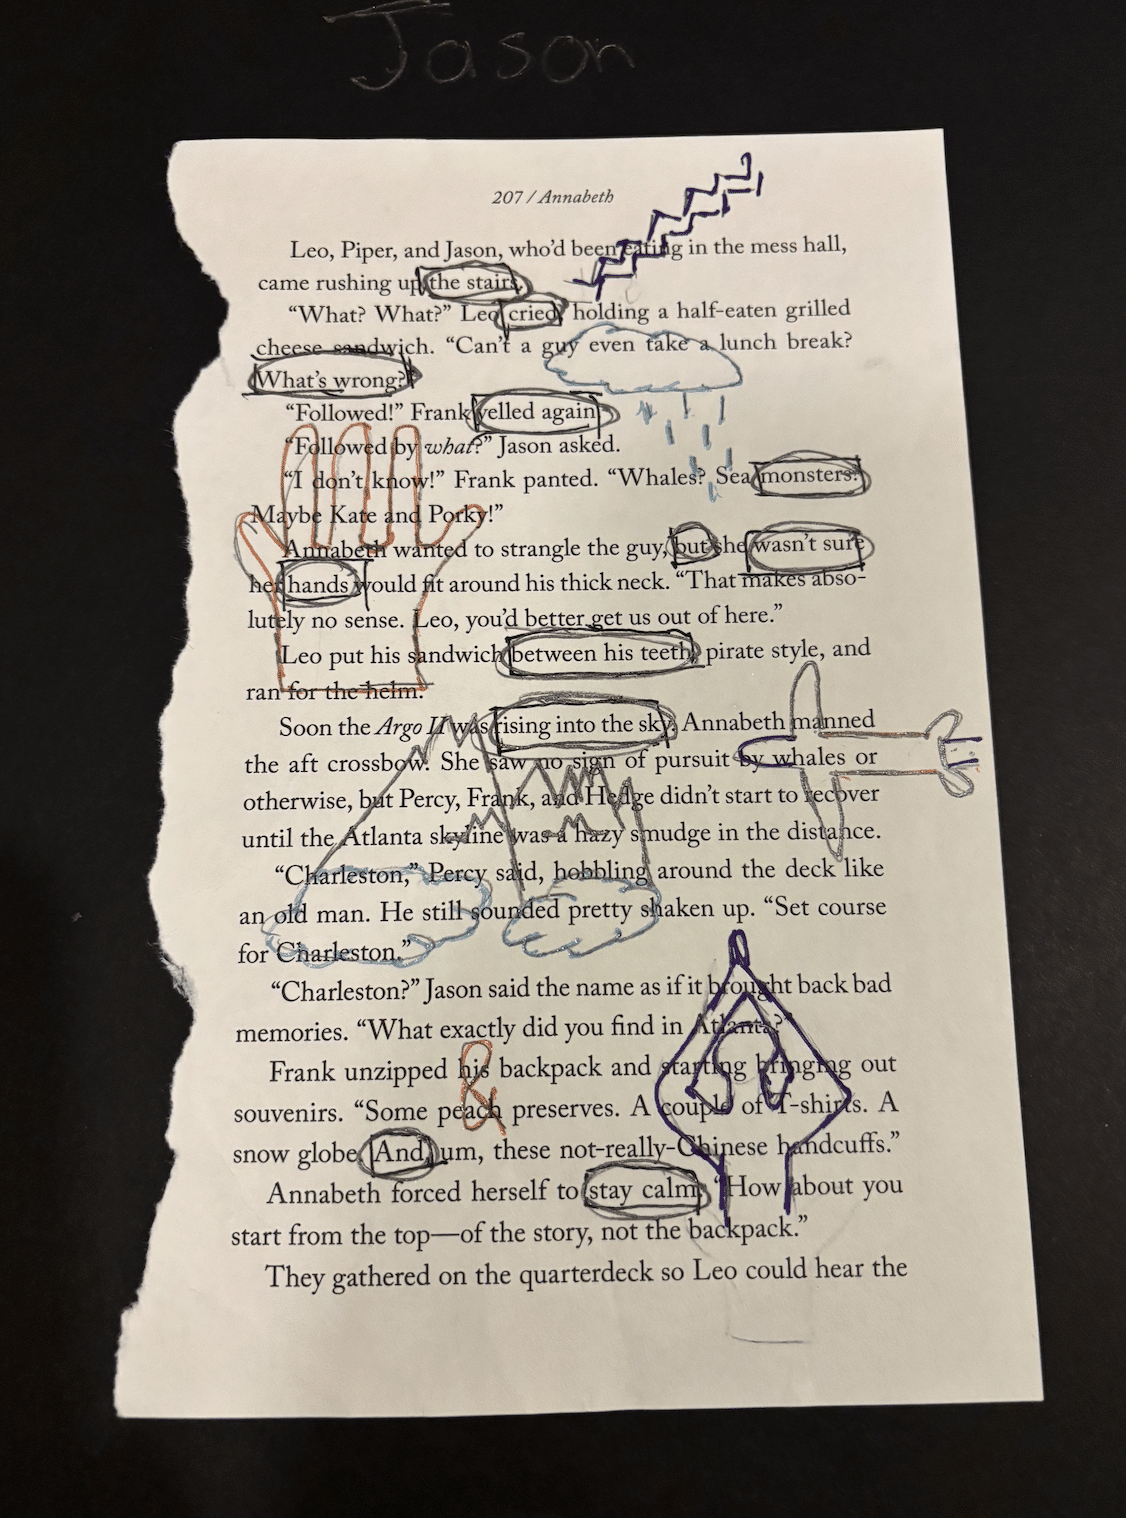 Jason
207 / Annabeth
Leo, Piper, and Jason, who'd been eating in the mess hall,
came rushing up the stairs.
"What? What?" Leo cried, holding a half-eaten grilled
cheese sandwich. "Can't a guy even take a lunch break?
What's wrong?"
"Followed!" Frank yelled again.
"Followed by what?" Jason asked.
"I don't know!" Frank panted. "Whales? Sea monsters?
Maybe Kate and Porky!"
Annabeth wanted to strangle the guy, but she wasn't sure
her hands would fit around his thick neck. "That makes abso-
lutely no sense. Leo, you'd better get us out of here."
Leo put his sandwich between his teeth, pirate style, and
ran for the helm.
Soon the Argo II was rising into the sky. Annabeth manned
the aft crossbow. She saw no sign of pursuit by whales or
otherwise, but Percy, Frank, and Hedge didn't start to recover
until the Atlanta skyline was a hazy smudge in the distance.
"Charleston," Percy said, hobbling around the deck like
an old man. He still sounded pretty shaken up. "Set course
for Charleston."
"Charleston?" Jason said the name as if it brought back bad
memories. "What exactly did you find in Atlanta?"
Frank unzipped his backpack and starting bringing out
souvenirs. "Some peach preserves. A couple of T-shirts. A
snow globe. And, um, these not-really-Chinese handcuffs."
Annabeth forced herself to stay calm. "How about you
start from the top—of the story, not the backpack."
They gathered on the quarterdeck so Leo could hear the